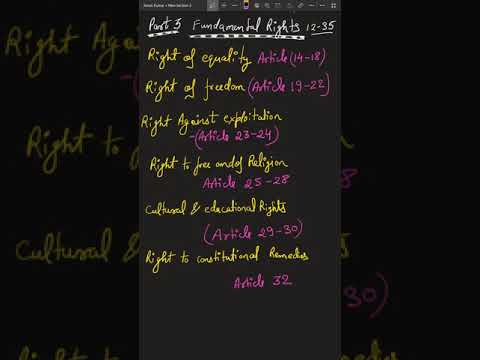 Part 3 Fundamental Rights 12-35
Right of equality Article (14-18)
Right of freedom (Article 19-22)
Right Against exploitation
-(Article 23-24)
Right to free andof Religion
Article 25-28
Cultural & educational Rights
(Article 29-30)
Right to constitutional Remedies
Article 32